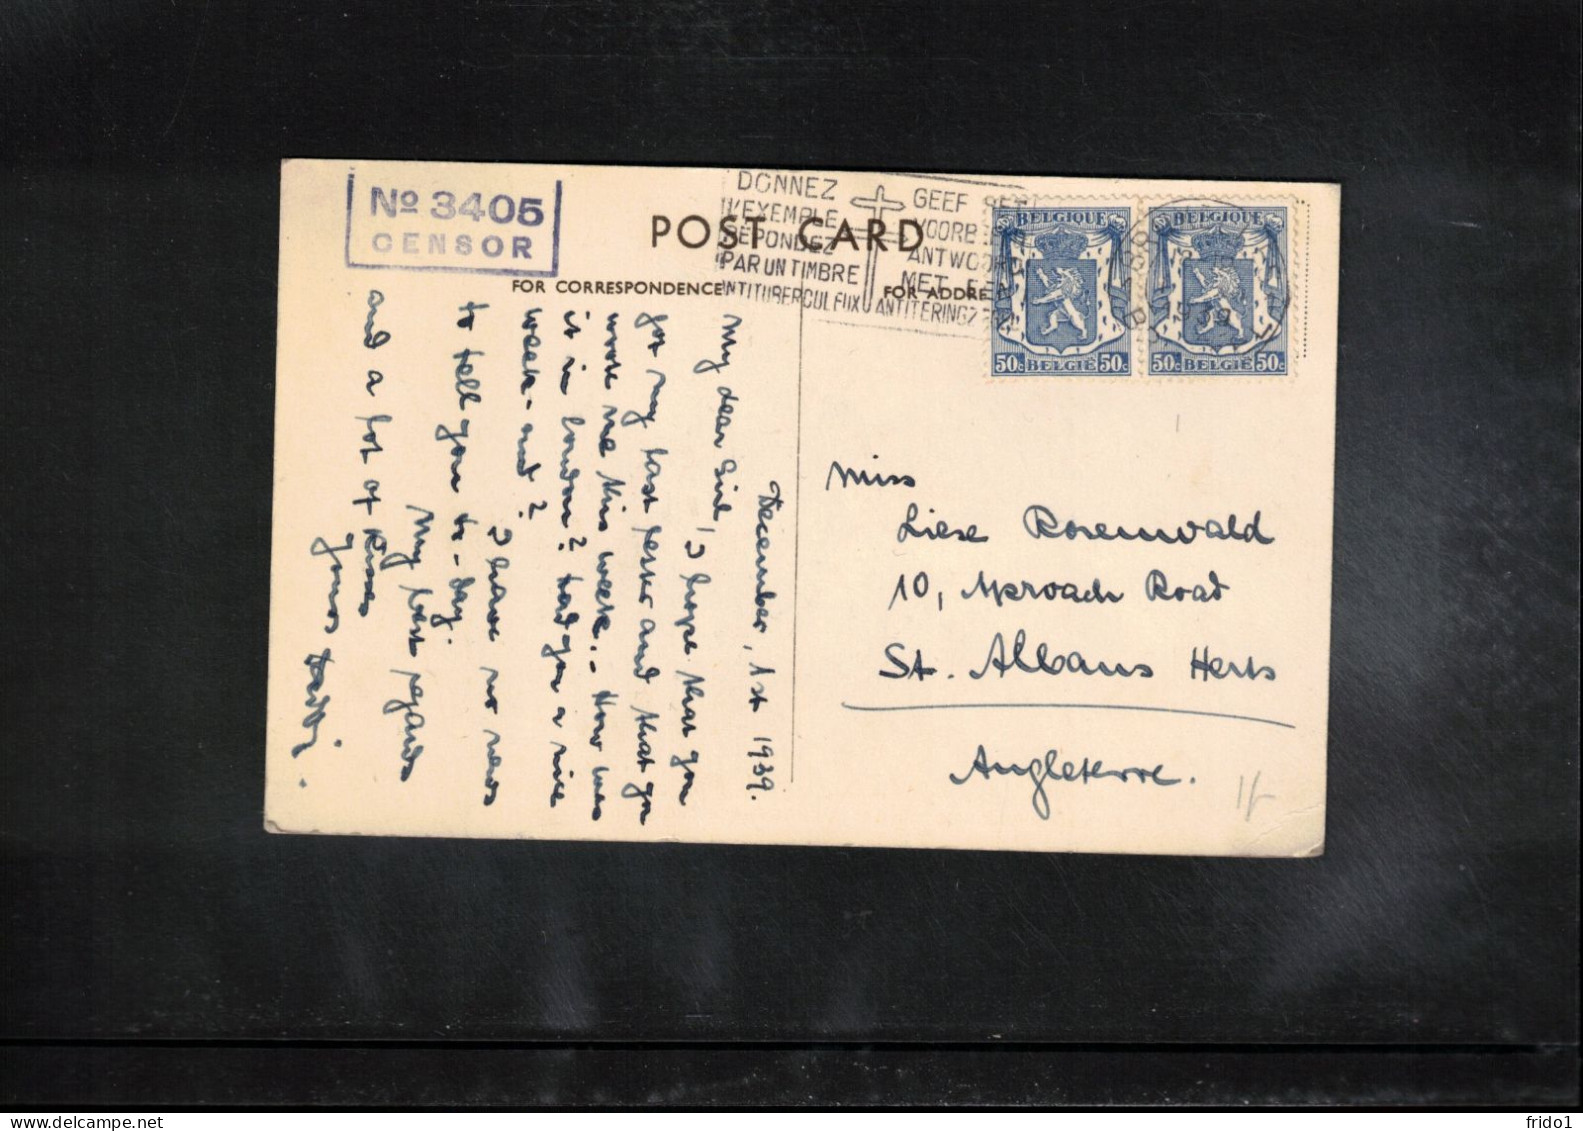 No 3405
CENSOR
DONNEZ
L'EXEMPLE
RÉPONDEZ
PAR UN TIMBRE
ANTITUBERCULEUX
GEEF HET
VOORBEELD
ANTWOORD
MET EEN
ANTITERINGZEGEL
POST CARD
FOR CORRESPONDENCE
FOR ADDRE
BELGIQUE
50c BELGIË 50c
BELGIQUE
50c BELGIË 50c
1939
December, 1st 1939.
My dear Girl, I hope that you
got my last letter and that you
wrote me this week. - How was
it in London? Had you a nice
week-end?
I have no news
to tell you to-day.
My best regards
and a lot of kisses
yours
Miss
Liese Rosenwald
10, Aproach Road
St. Albans Herts
Angleterre.
1f
frido1